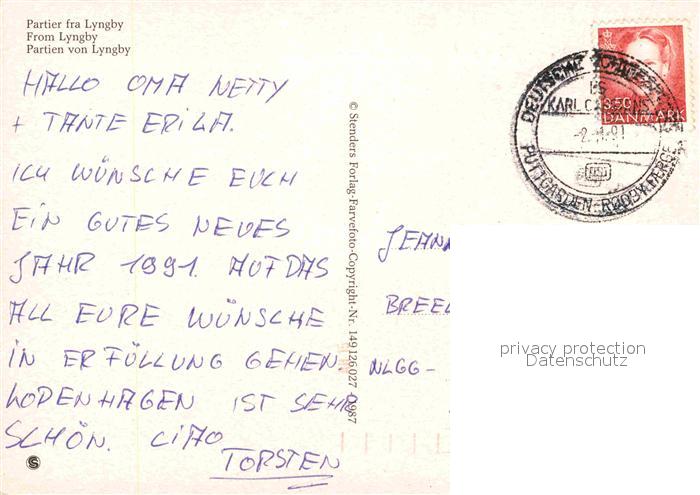 Partier fra Lyngby
From Lyngby
Partien von Lyngby
HALLO OMA NETTY
+ TANTE ERIKA.
ICH WÜNSCHE EUCH
EIN GUTES NEUES
JAHR 1991. AUF DAS
ALL EURE WÜNSCHE
IN ERFÜLLUNG GEHEN.
KOPENHAGEN IST SEHR
SCHÖN. CIAO
TORSTEN
© Stenders Forlag-Farvefoto-Copyright-Nr. 149,126027
S
DEUTSCHE
KARL
PUTTGARDEN-RØDBY FÆRGE
DB
350
DANMARK
BREE
NLGG-
privacy protection
Datenschutz